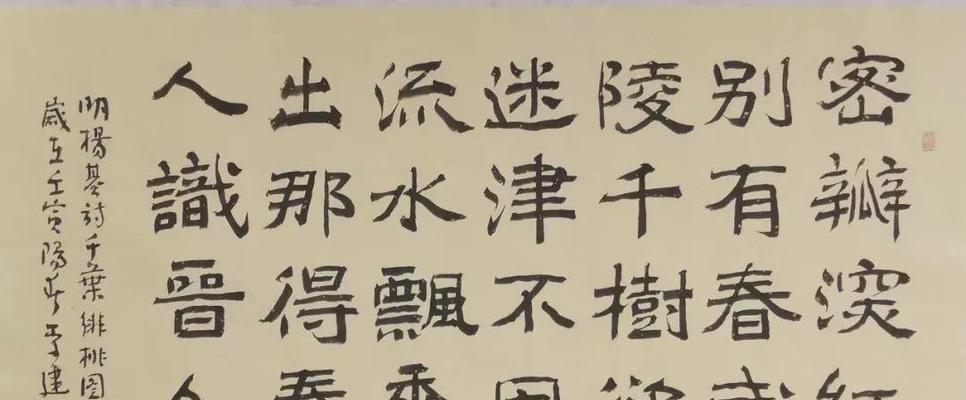 密瓣深紅
別有春
陵千樹
迷津不因
流水飄香
出那得春
人識晉人
明楊基詩千葉緋桃圖
歲在壬寅陽春